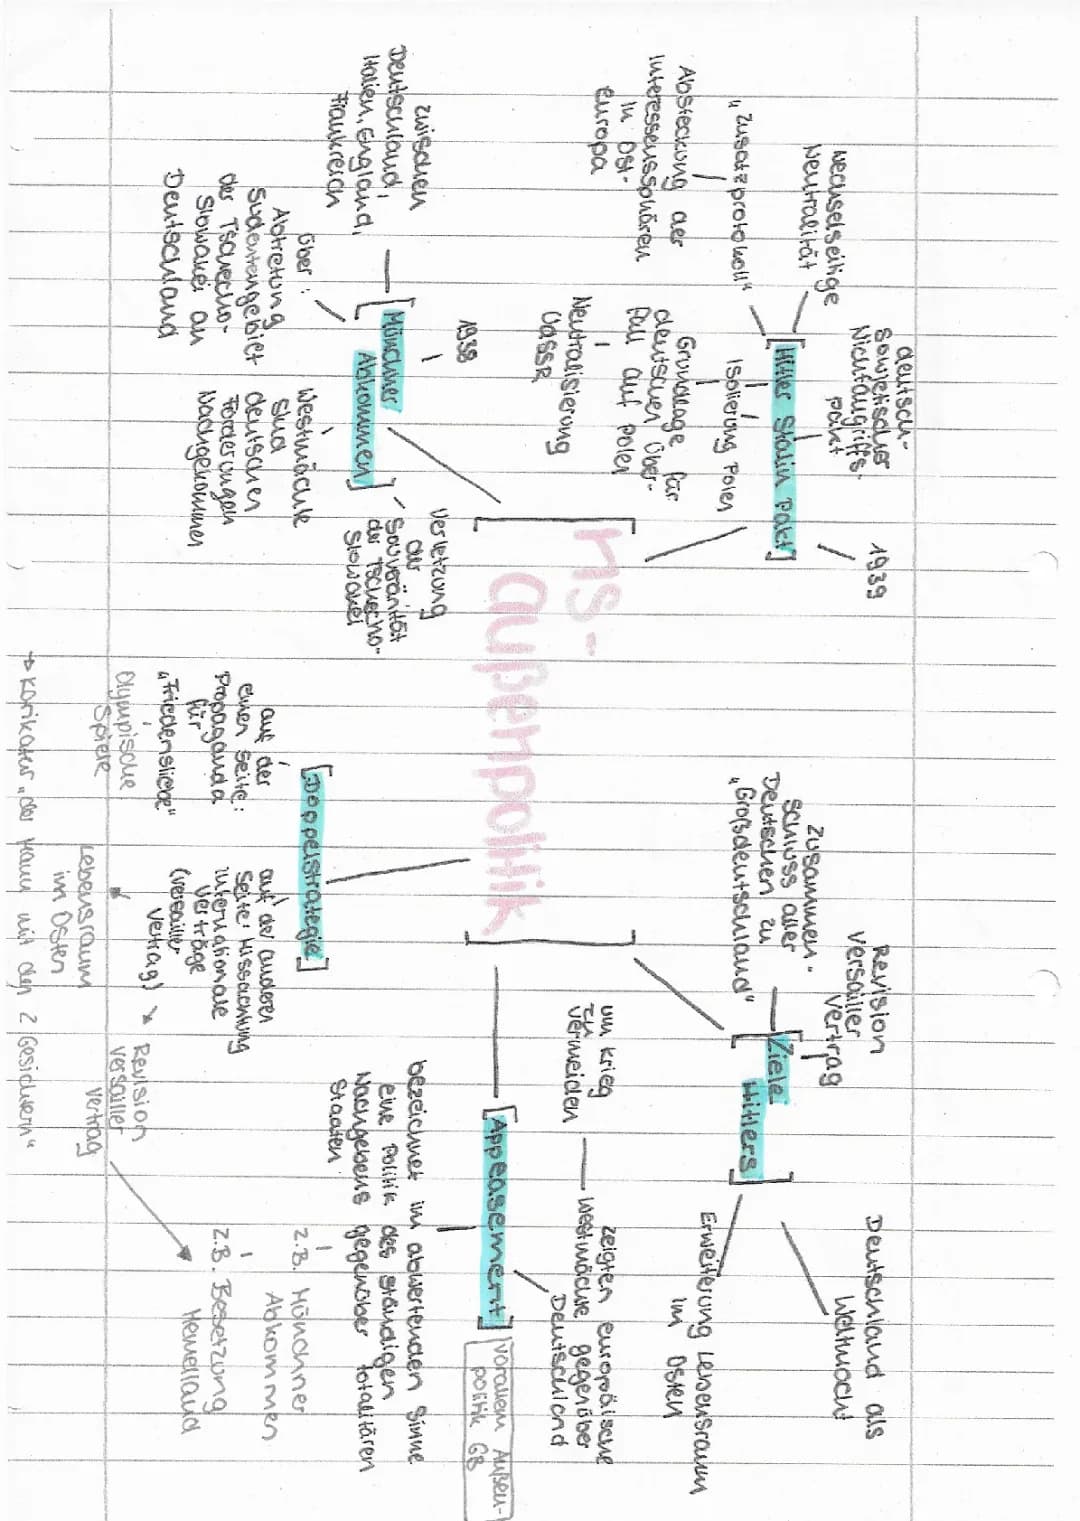 NS-
außenpolitik
[Hitler Stalin Pakt]
1939
deutsch-
sowjetischer
Nichtangriffs-
pakt
wechselseitige
Neutralität
"Zusatzprotokoll"
Absteckung der
Interessensphären
in Ost-
europa
Isolierung Polen
Grundlage für
deutschen Über-
fall auf Polen
Neutralisierung
UdSSR
[Münchner
Abkommen]
1938
zwischen
Deutschland,
Italien, England,
Frankreich
über:
Abtretung
Sudetengebiet
der Tschecho-
Slowakei an
Deutschland
Westmächte
sind
deutschen
Forderungen
Nachgekommen
Verletzung
der
Souveränität
der Tschecho-
Slowakei
[Ziele
Hitlers]
Revision
Versailler
Vertrag
Zusammen-
schluss aller
Deutschen zu
"Großdeutschland"
Deutschland als
Weltmacht
Erweiterung Lebensraum
im Osten
[Appeasement]
vorallem Außen-
politik GB
zeigten europäische
Westmächte gegenüber
Deutschland
um Krieg
zu
vermeiden
bezeichnet im abwertenden Sinne
eine Politik des ständigen
Nachgebens gegenüber totalitären
Staaten
z.B. Münchner
Abkommen
z.B. Besetzung
Memelland
[Doppelstrategie]
auf der
einen Seite:
Propaganda
für
"Friedensliebe"
Olympische
Spiele
auf der anderen
Seite: Missachtung
internationale
Verträge
(Versailler
Vertrag)
Revision
Versailler
Vertrag
Lebensraum
im Osten
→ Karikatur "der Mann mit den 2 Gesichtern"